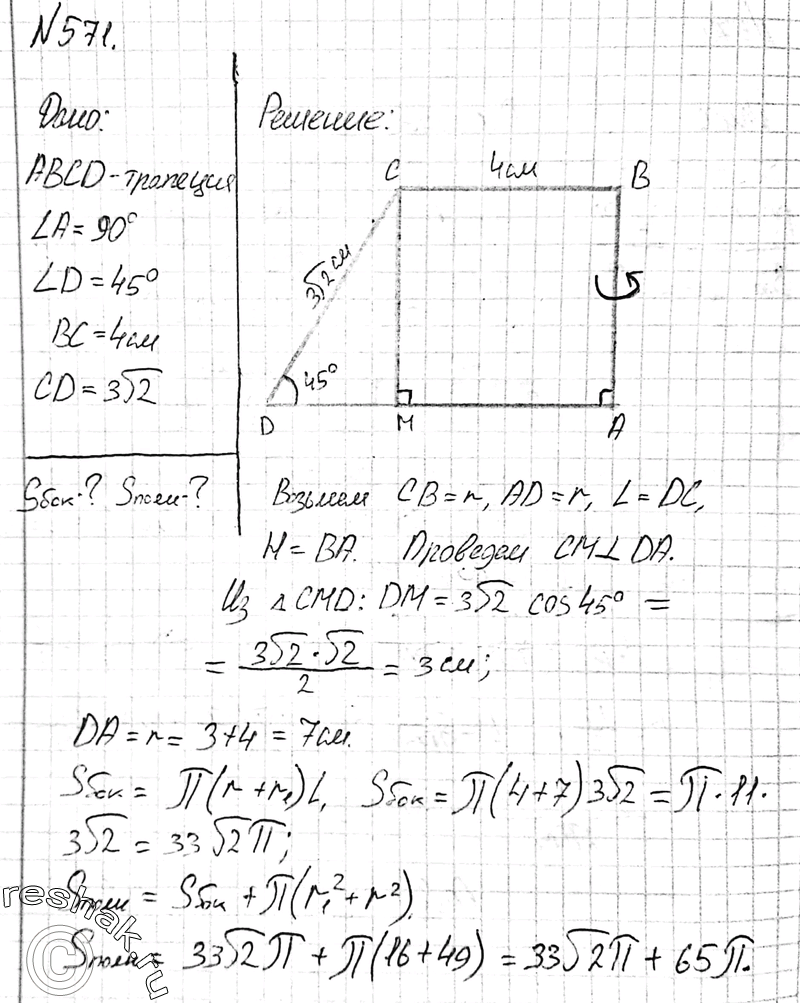 N571.
Дано:
ABCD-трапеция
∠A = 90°
∠D = 45°
BC = 4см
CD = 3√2
Sбок-? Sполн-?
Решение:
C 4см B
3√2 см
45°
D M A
Возьмем CB = r, AD = r, L = DC,
H = BA. Проведем CM⊥DA.
Из △CMD: DM = 3√2 cos45° =
= 3√2·√2/2 = 3см;
DA = r = 3+4 = 7см.
Sбок = π(r+r₁)L, Sбок = π(4+7)3√2 = π·11·
3√2 = 33√2π;
Sполн = Sбок + π(r₁²+r²).
Sполн = 33√2π + π(16+49) = 33√2π + 65π.
reshak.ru
©